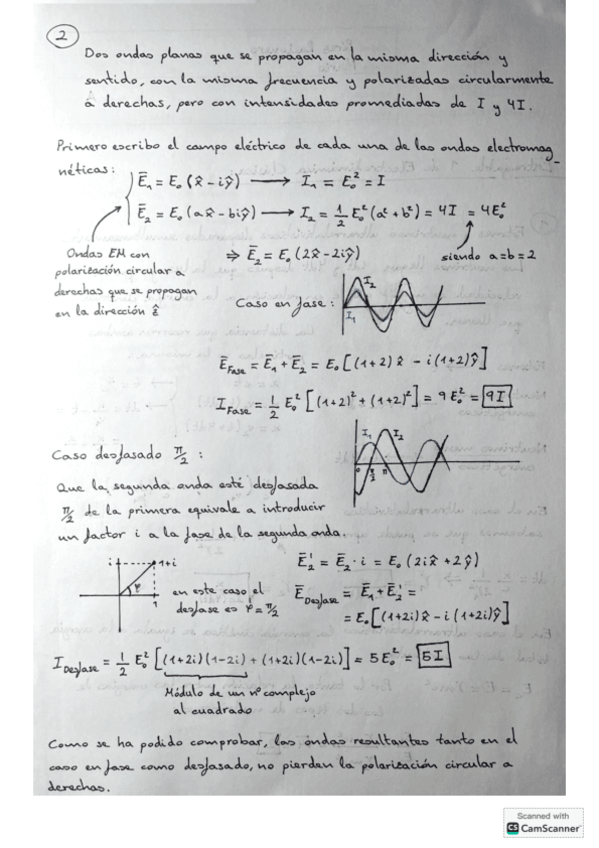 2
Dos ondas planas que se propagan en la misma dirección y
sentido, con la misma frecuencia y polarizadas circularmente
a derechas, pero con intensidades promediadas de I y 4I.
Primero escribo el campo eléctrico de cada una de las ondas electromag_
néticas:
Ē₁ = E₀ (x̂ - iŷ) ⟶ I₁ = E₀² = I
Ē₂ = E₀ (ax̂ - biŷ) ⟶ I₂ = 1/2 E₀² (a² + b²) = 4I = 4E₀²
Ondas EM con
polarización circular a
derechas que se propagan
en la dirección ẑ
⇒ Ē₂ = E₀ (2x̂ - 2iŷ)
siendo a=b=2
Caso en fase:
I₂
I₁
Ē_Fase = Ē₁ + Ē₂ = E₀ [(1+2) x̂ - i(1+2)ŷ]
I_Fase = 1/2 E₀² [(1+2)² + (1+2)²] = 9 E₀² = 9I
Caso desfasado π/2 :
I₁ I₂
0 π/2 π
Que la segunda onda esté desfasada
π/2 de la primera equivale a introducir
un factor i a la fase de la segunda onda.
i 1+i
φ
1
en este caso el
desfase es φ = π/2
Ē₂' = Ē₂ · i = E₀ (2ix̂ + 2ŷ)
Ē_Desfase = Ē₁ + Ē₂' =
= E₀ [(1+2i)x̂ - i(1+2i)ŷ]
I_Desfase = 1/2 E₀² [(1+2i)(1-2i) + (1+2i)(1-2i)] = 5E₀² = 5I
Módulo de un nº complejo
al cuadrado
Como se ha podido comprobar, las ondas resultantes tanto en el
caso en fase como desfasado, no pierden la polarización circular a
derechas.
Scanned with
CS CamScanner